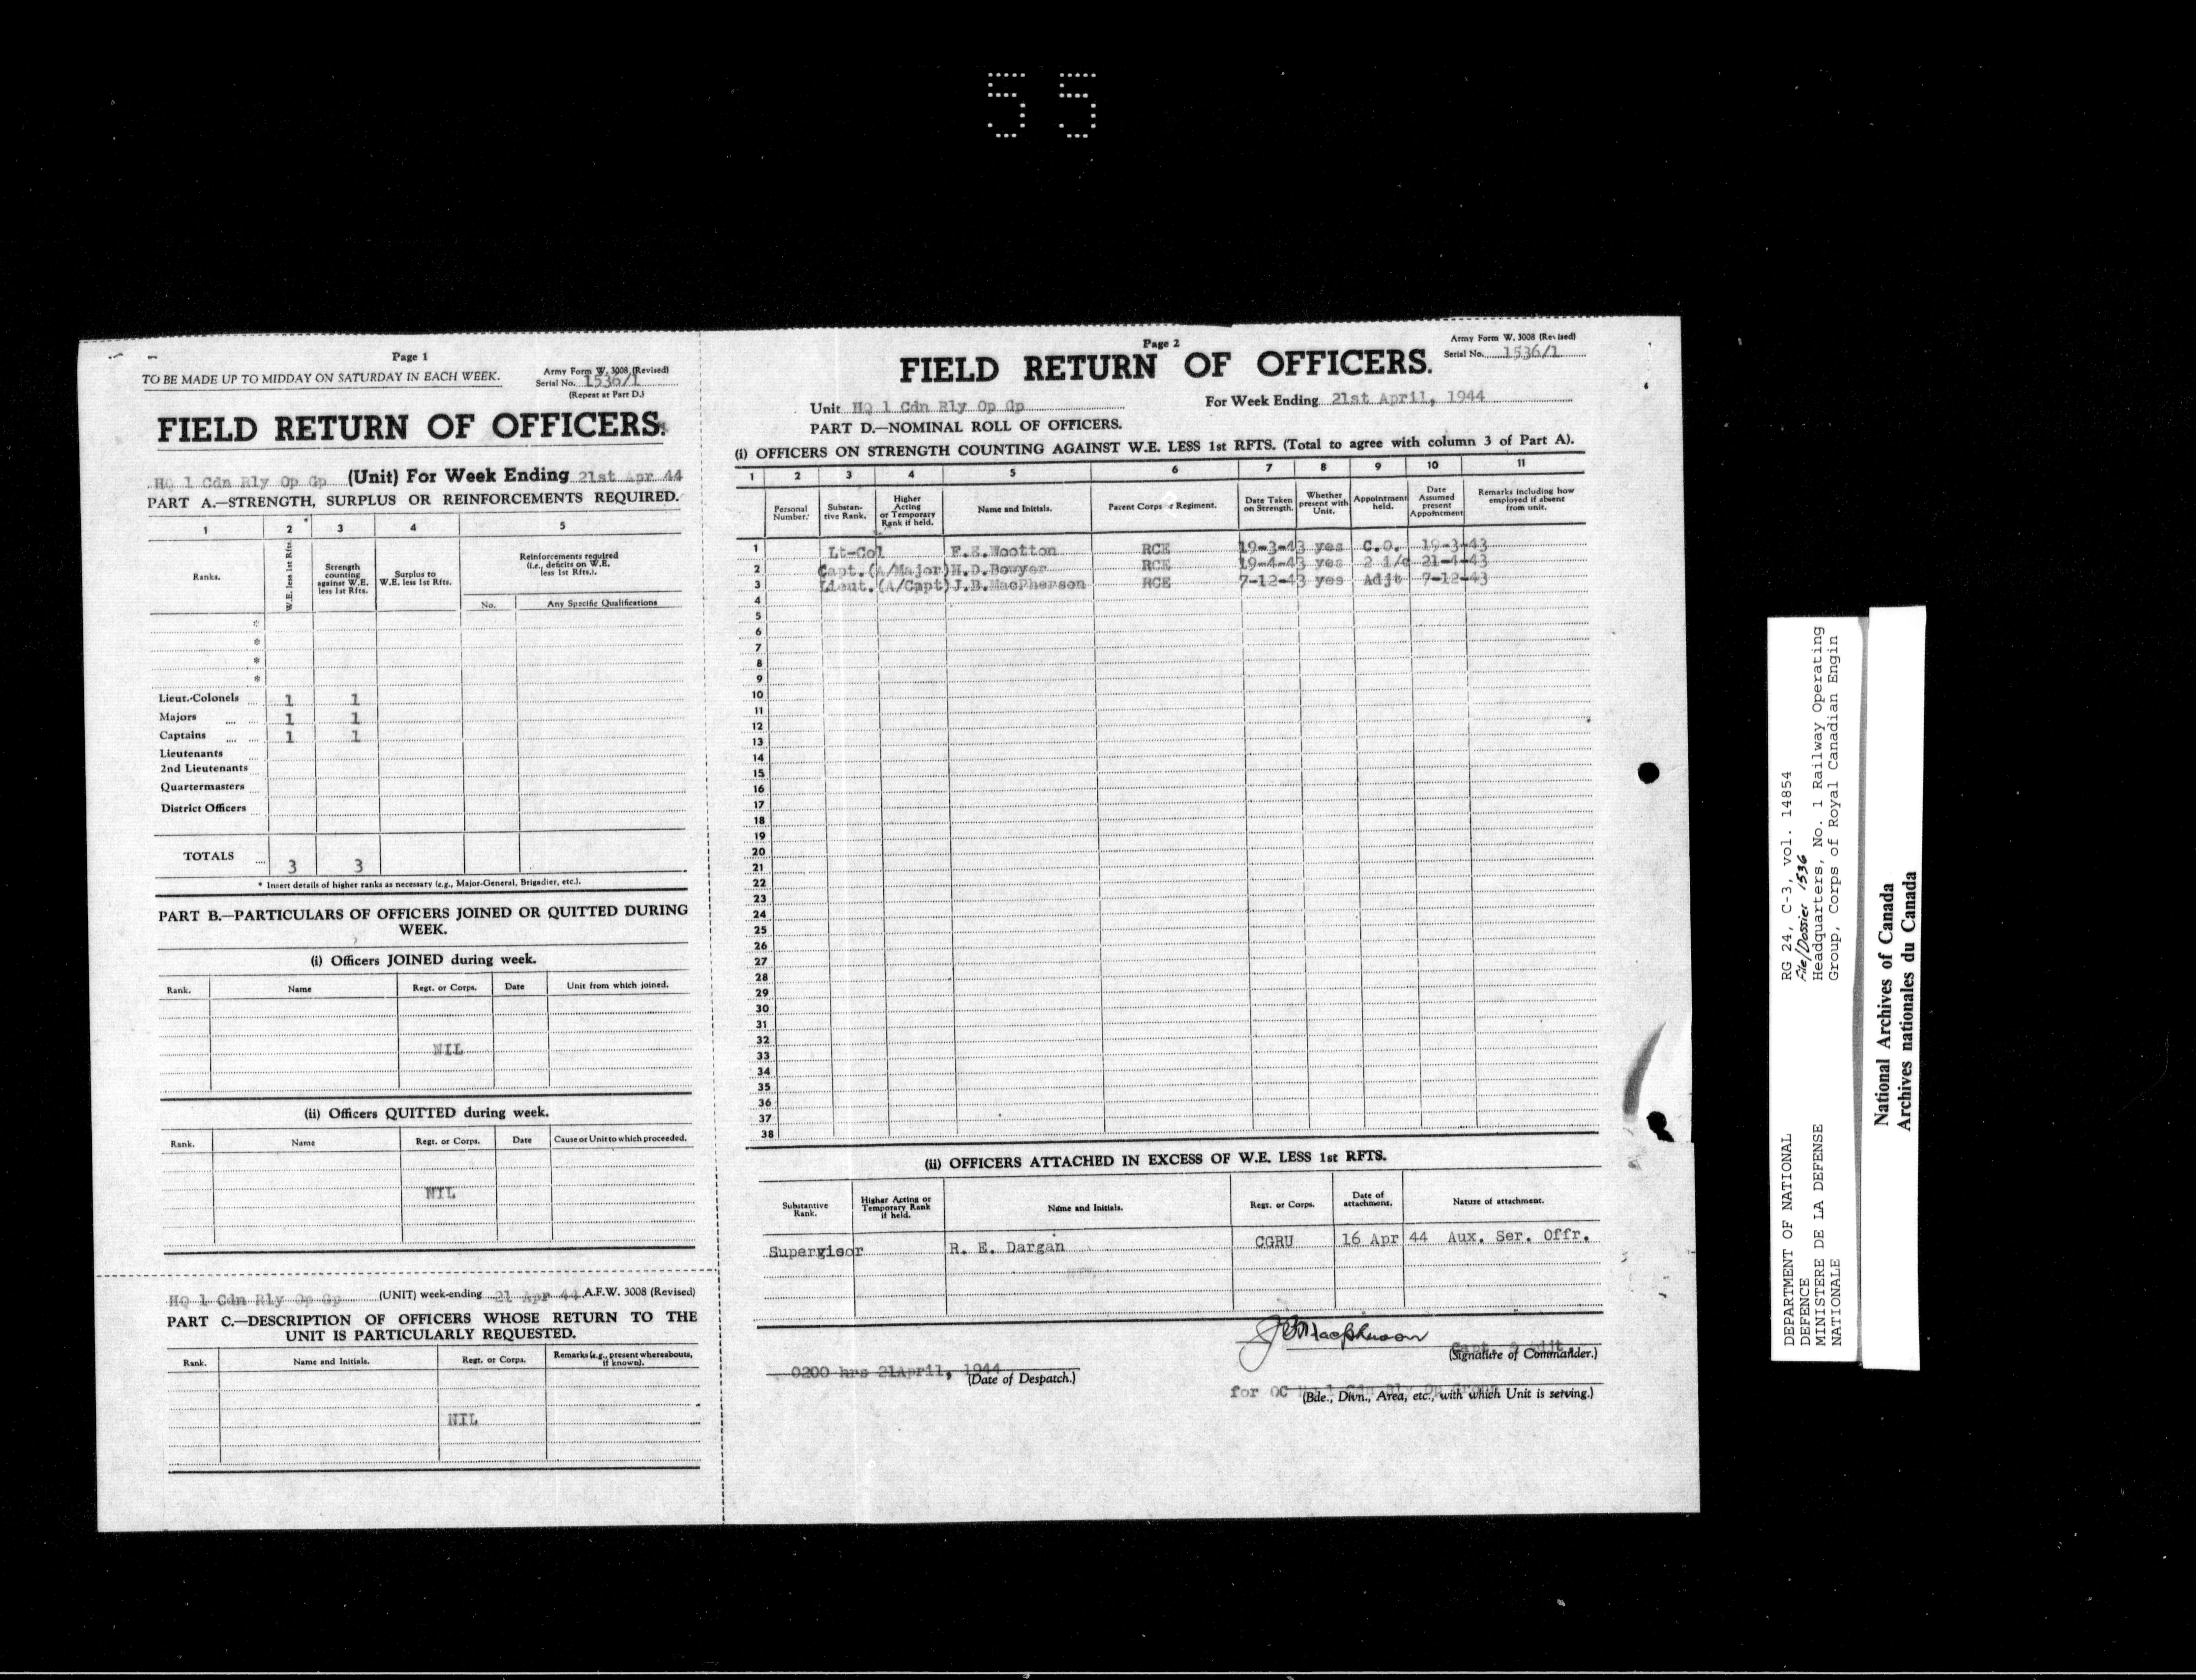 55
Page 1
TO BE MADE UP TO MIDDAY ON SATURDAY IN EACH WEEK.
Army Form W. 3008 (Revised)
Serial No. 1536/1
(Repeat at Part D.)
FIELD RETURN OF OFFICERS.
HQ 1 Cdn Rly Op Gp (Unit) For Week Ending 21st Apr 44
PART A.—STRENGTH, SURPLUS OR REINFORCEMENTS REQUIRED.
1 2 3 4 5
Ranks. W.E. less 1st Rfts. Strength counting against W.E. less 1st Rfts. Surplus to W.E. less 1st Rfts. Reinforcements required (i.e., deficits on W.E. less 1st Rfts.).
No. Any Specific Qualifications
*
*
*
*
Lieut.-Colonels 1 1
Majors 1 1
Captains 1 1
Lieutenants
2nd Lieutenants
Quartermasters
District Officers
TOTALS 3 3
* Insert details of higher ranks as necessary (e.g., Major-General, Brigadier, etc.).
PART B.—PARTICULARS OF OFFICERS JOINED OR QUITTED DURING
WEEK.
(i) Officers JOINED during week.
Rank. Name Regt. or Corps. Date Unit from which joined.
NIL
(ii) Officers QUITTED during week.
Rank. Name Regt. or Corps. Date Cause or Unit to which proceeded.
NIL
HQ 1 Cdn Rly Op Gp (UNIT) week-ending 21 Apr 44 A.F.W. 3008 (Revised)
PART C.—DESCRIPTION OF OFFICERS WHOSE RETURN TO THE
UNIT IS PARTICULARLY REQUESTED.
Rank. Name and Initials. Regt. or Corps. Remarks (e.g., present whereabouts, if known).
NIL
Page 2
Army Form W. 3008 (Revised)
FIELD RETURN OF OFFICERS.
Serial No. 1536/1
Unit HQ 1 Cdn Rly Op Gp For Week Ending 21st April, 1944
PART D.—NOMINAL ROLL OF OFFICERS.
(i) OFFICERS ON STRENGTH COUNTING AGAINST W.E. LESS 1st RFTS. (Total to agree with column 3 of Part A).
1 2 3 4 5 6 7 8 9 10 11
Personal Number. Substantive Rank. Higher Acting or Temporary Rank if held. Name and Initials. Parent Corps or Regiment. Date Taken on Strength. Whether present with Unit. Appointment held. Date Assumed present Appointment Remarks including how employed if absent from unit.
1 Lt-Col F.E.Wootton RCE 19-3-43 yes C.O. 19-3-43
2 Capt. (A/Major) H.D.Bowyer RCE 19-4-43 yes 2 i/c 21-4-43
3 Lieut. (A/Capt) J.B.MacPherson RCE 7-12-43 yes Adjt 7-12-43
4
5
6
7
8
9
10
11
12
13
14
15
16
17
18
19
20
21
22
23
24
25
26
27
28
29
30
31
32
33
34
35
36
37
38
(ii) OFFICERS ATTACHED IN EXCESS OF W.E. LESS 1st RFTS.
Substantive Rank. Higher Acting or Temporary Rank if held. Name and Initials. Regt. or Corps. Date of attachment. Nature of attachment.
Supervisor R. E. Dargan CGRU 16 Apr 44 Aux. Ser. Offr.
JBMacpherson
Capt. & Adjt.
(Signature of Commander.)
0200 hrs 21April, 1944
(Date of Despatch.)
for OC
(Bde., Divn., Area, etc., with which Unit is serving.)
DEPARTMENT OF NATIONAL
DEFENCE
MINISTERE DE LA DEFENSE
NATIONALE
RG 24, C-3, vol. 14854
File/Dossier 1536
Headquarters, No. 1 Railway Operating
Group, Corps of Royal Canadian Engin
National Archives of Canada
Archives nationales du Canada